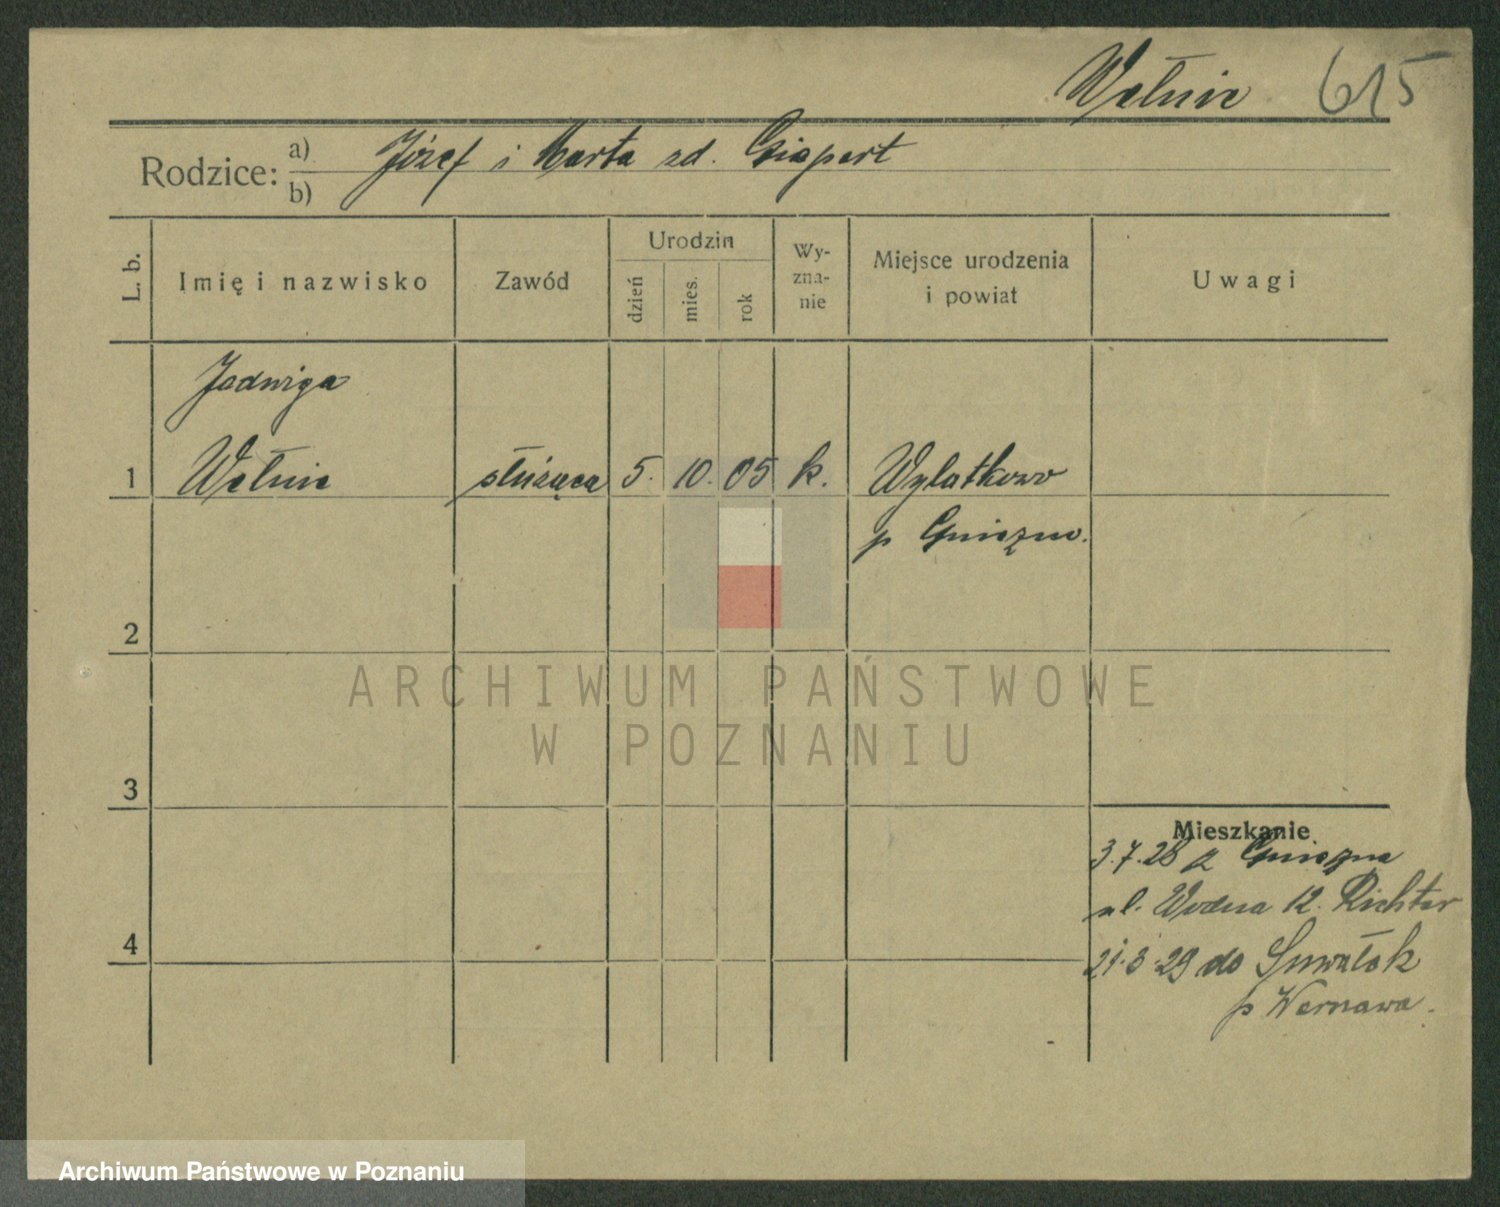 Wełnic 615
Rodzice: a) Józef i Marta zd. Giepert
b)
L. b. Imię i nazwisko Zawód Urodzin dzień mies. rok Wy-zna-nie Miejsce urodzenia i powiat Uwagi
Jadwiga
1 Wełnic służąca 5. 10. 05 k. Wylatkowo
p Gniezno.
2
ARCHIWUM PAŃSTWOWE
W POZNANIU
3
Mieszkanie
3.7.28 z Gniezna
ul. Wodna 12. Richter
4
21.8.29 do Suwałek
p
Archiwum Państwowe w Poznaniu